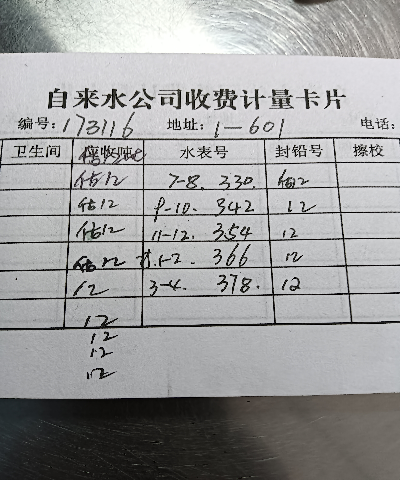 自来水公司收费计量卡片
编号: 173116 地址: 1-601 电话:
卫生间 水表号 封铅号 擦校
估12 7-8. 330. 估12
估12 9-10. 342 12
估12 11-12. 354 12
估12 1-2. 366 12
12 3-4. 378. 12
12
12
12
12